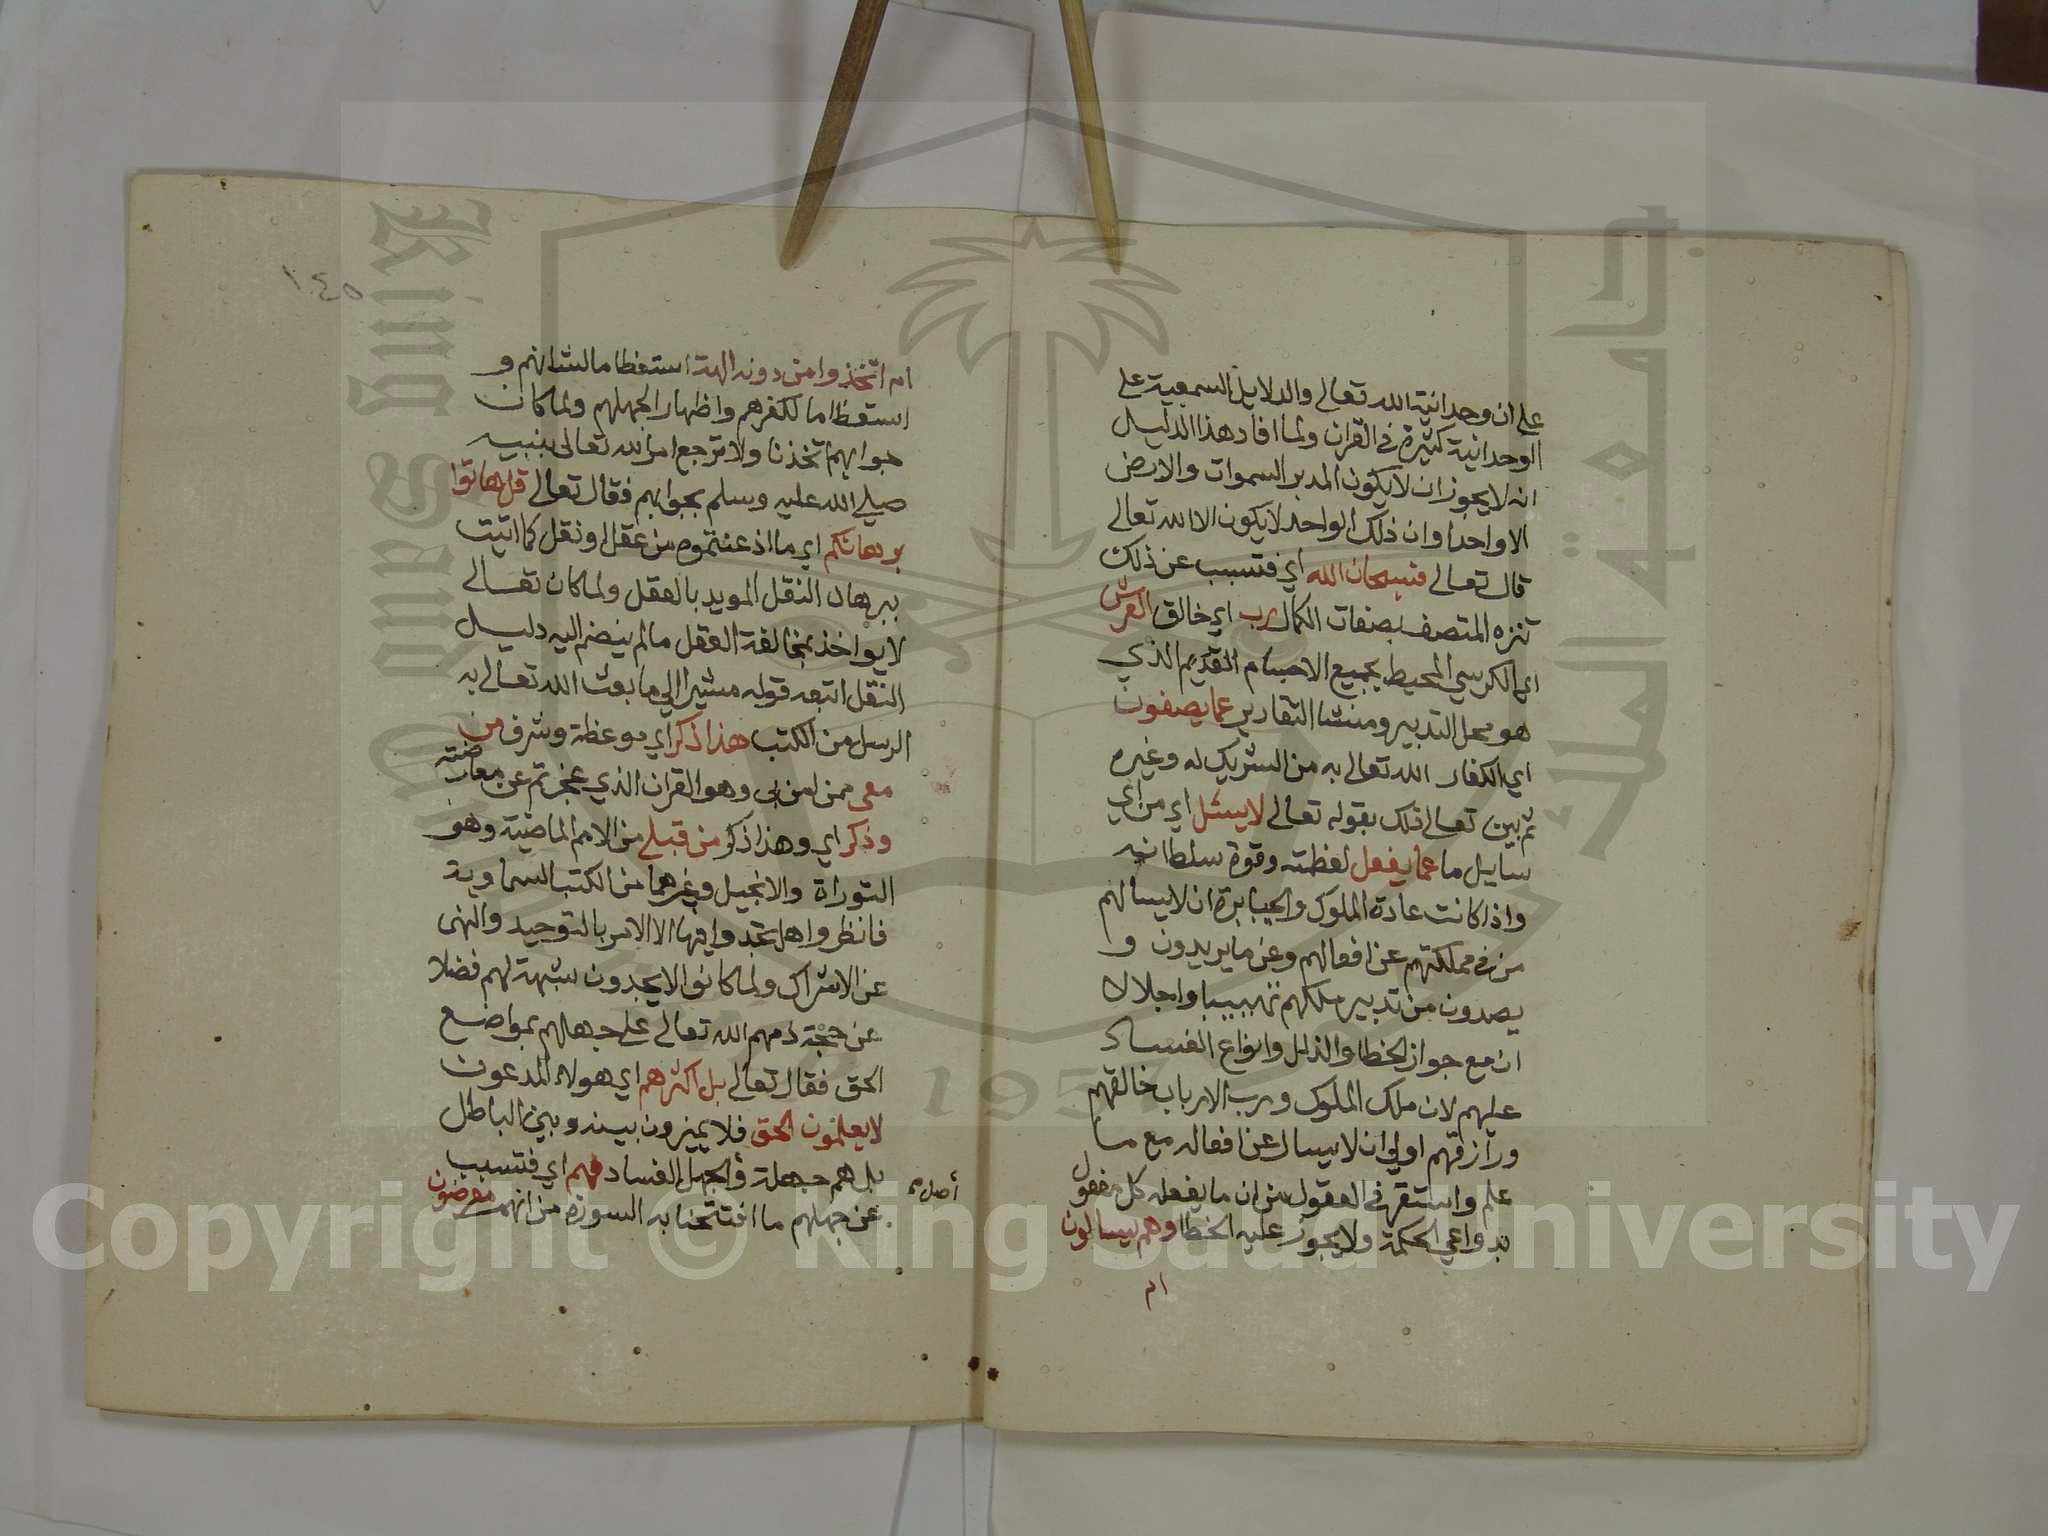 على ان وحدانية الله تعالى والدلايل السمعية على
الوحدانية كثيرة في القران ولما افاد هذا الدليل
انه لا يجوز ان لا يكون المدبر السموات والارض
الا واحدا وان ذلك الواحد لا يكون الا الله تعالى
قال تعالى فسبحان الله اي فتسبب عن ذلك
تنزه المتصف بصفات الكمال رب اي خالق العرش
اي الكرسي المحيط بجميع الاجسام القديم الذي
هو محل التدبير ومنشا التقادير عما يصفون
اي الكفار الله تعالى به من الشريك له وغيره
ثم بين تعالى ذلك بقوله تعالى لا يسئل اي من اي
سايل ما عما يفعل لعظمته وقوة سلطانه
واذا كانت عادة الملوك والجبابرة ان لا يسالهم
من في مملكتهم عن افعالهم وعن ما يريدون و
يصدون من تدبير ملكهم تهيببا واجلالا
ان مع جواز الخطا والذلل وانواع الفساد
عليهم لان ملك الملوك ورب الارباب خالقهم
ورازقهم اولى ان لا يسال عن افعاله مع ما
علم واستقر في العقول من ان ما يفعله كل مفعول
بدواعي الحكمة ولا يجوز عليه الخطا وهم يسالون
ام
١٤٥
ام اتخذوا من دونه الهة استعظاما لشانهم و
استعظاما لكفرهم واظهار الجهلهم ولما كان
جوابهم اتخذنا ولا ترجع امر الله تعالى بنبيه
صلى الله عليه وسلم بجوابهم فقال تعالى قل هاتوا
برهانكم اي ما ادعيتموه من عقل او نقل كما اتيت
ببرهان النقل المويد بالعقل ولما كان تعالى
لا يواخذ بمخالفة العقل ما لم ينضم اليه دليل
النقل اتبعه قوله مشيرا الى ما بعث الله تعالى به
الرسل من الكتب هذا ذكر اي موعظة وشرف من
معي ممن امن بي وهو القران الذي عجزتم عن معارضته
وذكر اي وهذا ذكر من قبلي من الامم الماضية وهو
التوراة والانجيل وغيرهما من الكتب السماوية
فانظروا هل تجدوا فيها الا الامر بالتوحيد والنهي
عن الاشراك ولما كانوا لا يجدون شبهة لهم فضلا
عن حجة ذمهم الله تعالى على جهلهم بمواضع
الحق فقال تعالى بل اكثرهم اي هولاء المدعون
لا يعلمون الحق فلا يميزون بينه وبين الباطل
بل هم جهلة والجهل الفساد فهم اي فتسبب
عن جهلهم ما افتتحنا به السورة من انهم معرضون
أصل
King Saud University
جامعة الملك سعود
1957
Copyright © King Saud University